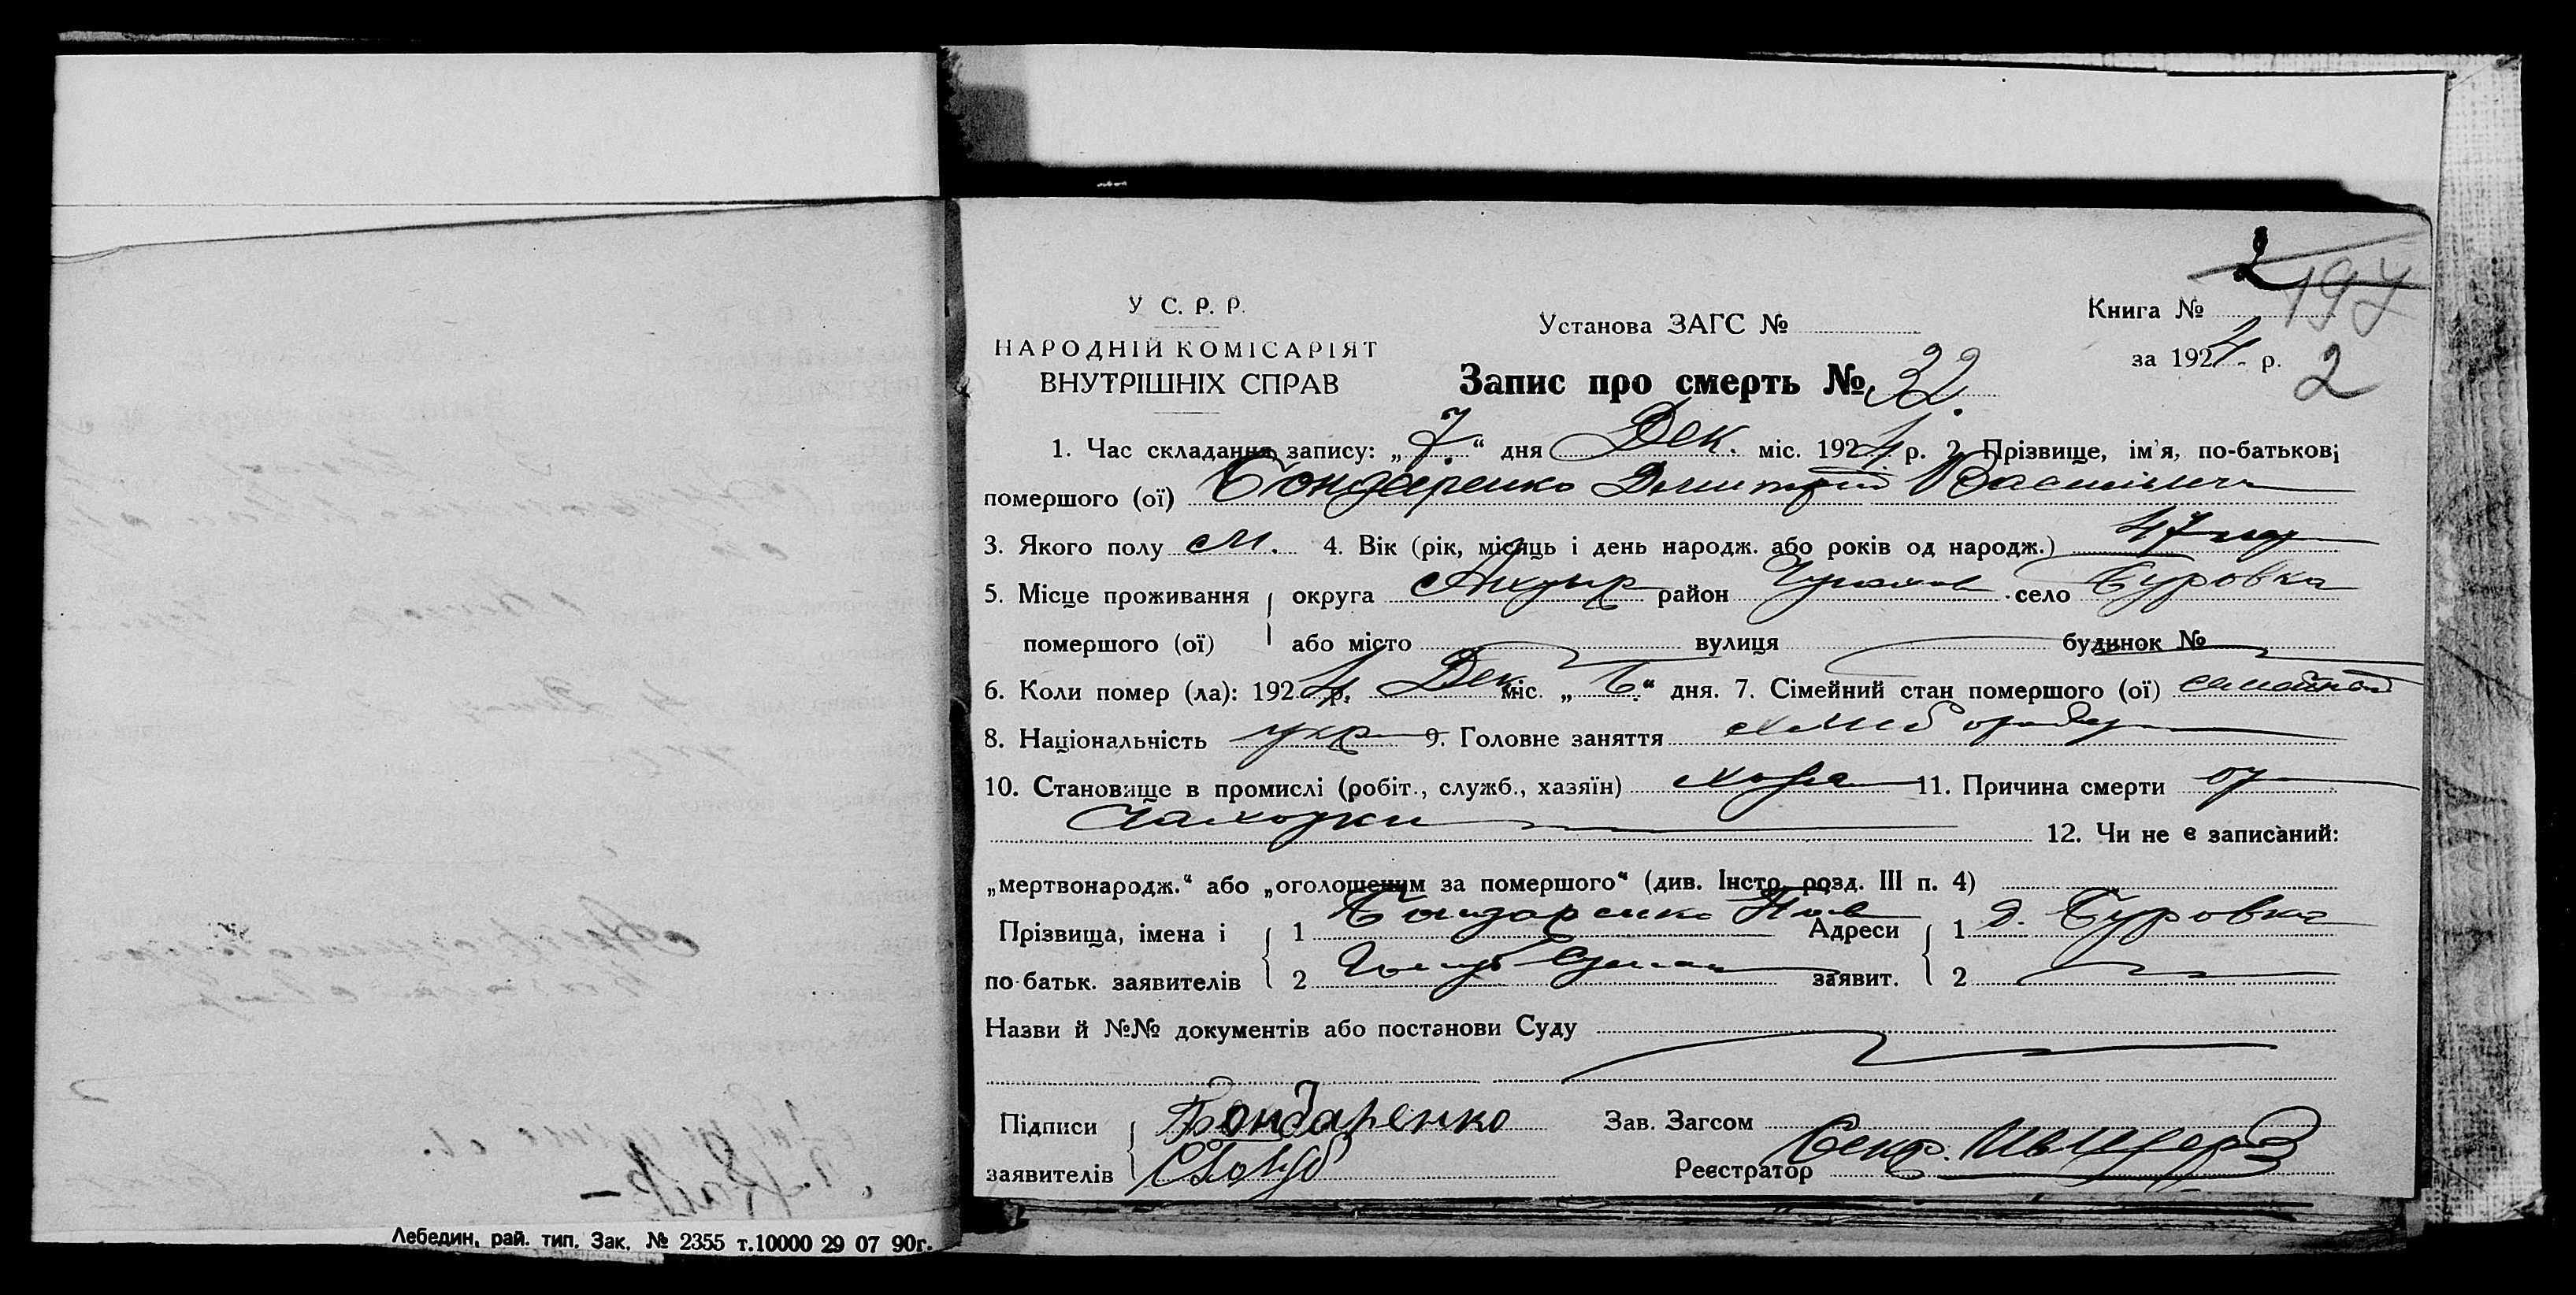 2
197
У С. Р. Р.
НАРОДНІЙ КОМІСАРІЯТ
ВНУТРІШНІХ СПРАВ
Установа ЗАГС №
Книга №
за 1924 р.
2
Запис про смерть № 32.
1. Час складання запису: „7.“ дня Дек. міс. 1924 р. 2. Прізвище, ім'я, по-батькові
помершого (ої) Бондаренко Дмитрий Васильевич
3. Якого полу м. 4. Вік (рік, місяць і день народж. або років од народж.) 47
5. Місце проживання округа Ахтыр район село Буровка
помершого (ої) або місто вулиця будинок №
6. Коли помер (ла): 1924 р. Дек міс. „6“ дня. 7. Сімейний стан помершого (ої) семейный
8. Національність укр 9. Головне заняття хлебороб
10. Становище в промислі (робіт., служб., хазяїн) 11. Причина смерти от
Чахотки 12. Чи не є записаний:
„мертвонародж.“ або „оголошеним за помершого“ (див. Інстр. розд. III п. 4)
Прізвища, імена і 1 Бондаренко Адреси 1 д. Буровка
по-батьк. заявителів 2 Голуб заявит. 2
Назви й №№ документів або постанови Суду
Підписи Бондаренко Зав. Загсом
заявителів Голуб Реєстратор Секр.
Лебедин, рай. тип. Зак. № 2355 т.10000 29 07 90г.